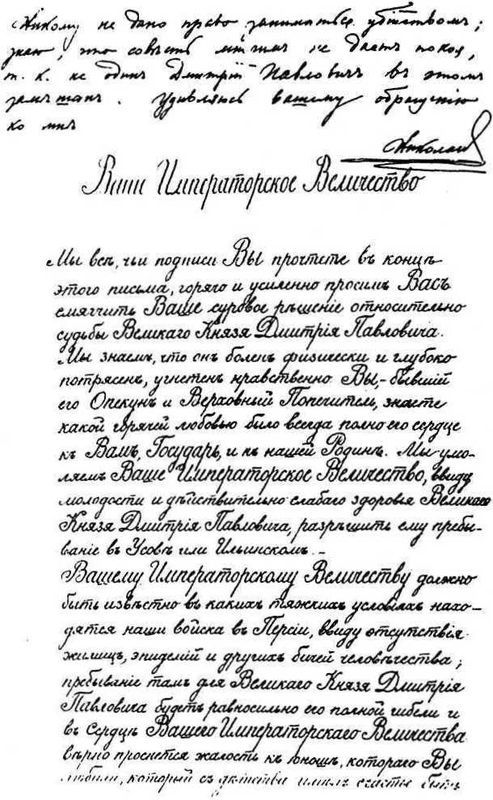 Никому не дано право заниматься убiйствомъ;
знаю, что совѣсть многимъ не даетъ покоя,
т. к. не одинъ Дмитрiй Павловичъ въ этомъ
замѣшанъ. Удивляюсь вашему обращенiю
ко мнѣ
Николай
Ваше Императорское Величество
Мы всѣ, чьи подписи Вы прочтете въ концѣ
этого письма, горячо и усиленно просимъ Васъ
смягчить Ваше суровое рѣшенiе относительно
судьбы Великаго Князя Дмитрiя Павловича.
Мы знаемъ, что онъ боленъ физически и глубоко
потрясенъ, угнетенъ нравственно. Вы,-бывшiй
его Опекунъ и Верховный Попечитель, знаете
какой горячей любовью было всегда полно его сердце
къ Вамъ, Государь, и къ нашей Родинѣ. Мы умо-
ляемъ Ваше Императорское Величество, ввиду
молодости и дѣйствительно слабаго здоровья Великаго
Князя Дмитрiя Павловича, разрѣшить ему пребы-
ванiе въ Усовѣ или Ильинскомъ.-
Вашему Императорскому Величеству должно
быть извѣстно въ какихъ тяжкихъ условiяхъ нахо-
дятся наши войска въ Персiи, ввиду отсутствiя
жилищъ, эпидемiй и другихъ бичей человѣчества;
пребыванiе тамъ для Великаго Князя Дмитрiя
Павловича будетъ равносильно его полной гибели и
въ Сердцѣ Вашего Императорскаго Величества
вѣрно проснется жалость къ юношѣ, котораго Вы
любили, который съ дѣтства имѣлъ счастье быть